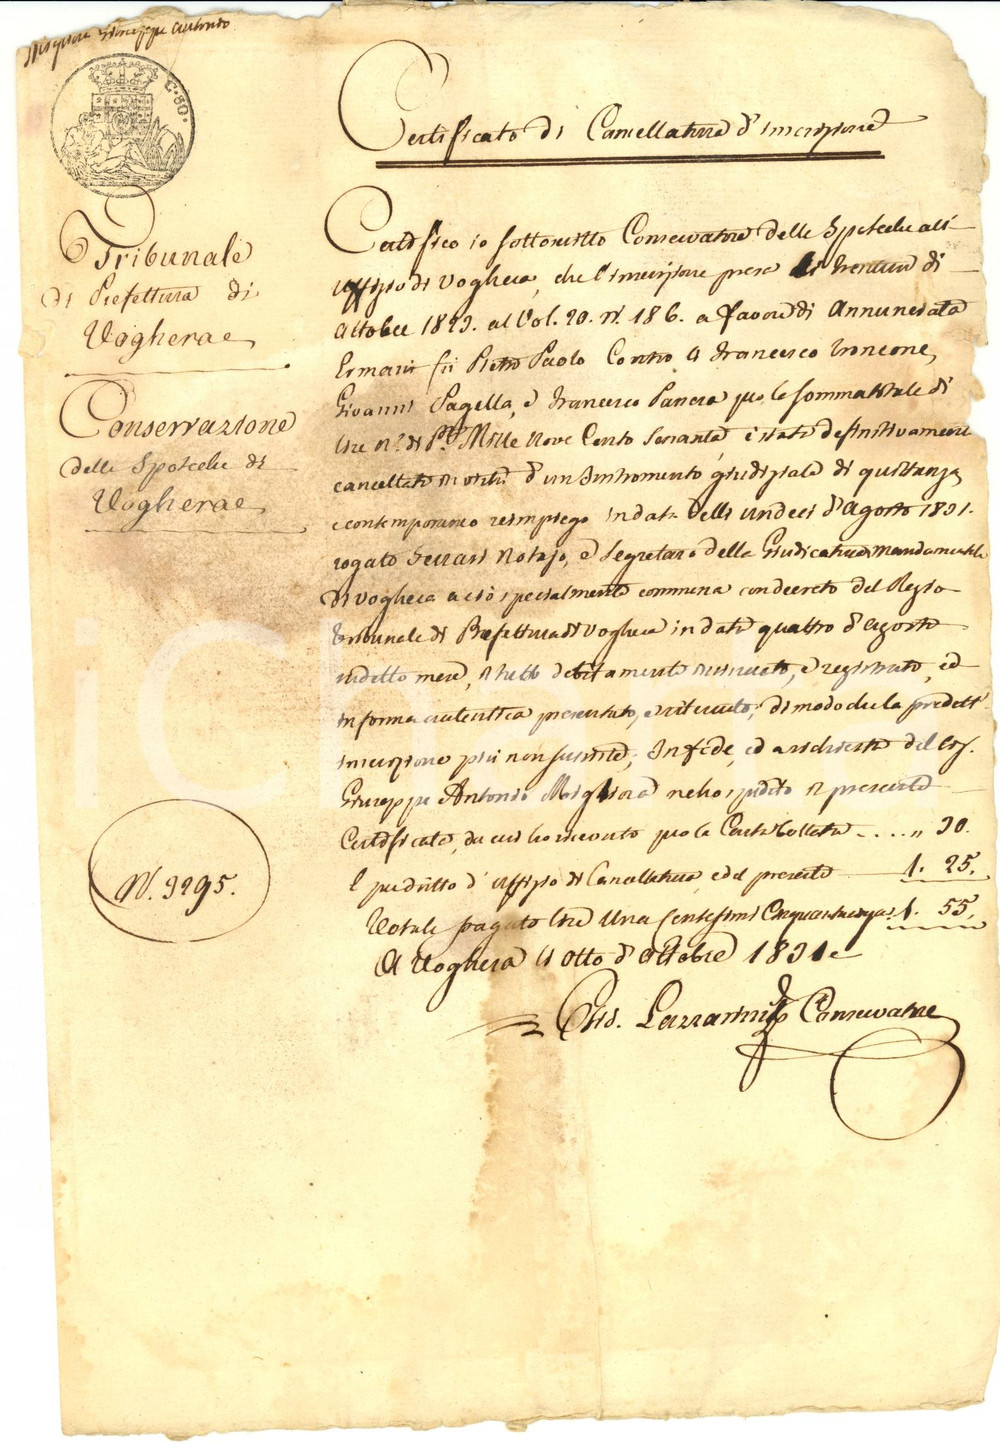 Giuseppe Antonio
C. 30.
Certificato di Cancellatura d'inscrizione
Tribunale
di Prefettura di
Voghera
Conservazione
delle Ipoteche di
Voghera
N. 3295.
Certifico io sottoscritto Conservatore delle Ipoteche all'
uffizio di Voghera, che l'inscrizione presa li trentun di
Ottobre 1823. al Vol. 20. N. 186. a favore di Annunciata
Ermani fu Pietro Paolo Contro a Francesco
Giovanni Pagella, e Francesco Panera per la somma totale di
Lire N.e di P.te Mille Nove Cento Sessanta è stata definitivamente
cancellata in virtù d'un Instromento giudiziale di quittanza
e contemporaneo reimpiego in data delli undeci d'Agosto 1831.
rogato Ferrari Notajo, e Segretaro della Giudicatura Mandamentale
di Voghera a ciò specialmente commessa con decreto del Regio
Tribunale di Prefettura di Voghera in data quattro d'Agosto
sudetto mese, il tutto debitamente insinuato, e registrato, ed
in forma autentica presentato, e ritenuto; di modo che la predett'
inscrizione più non sussiste; In fede, ed a richiesta del Sig.
Giuseppe Antonio ne ho spedito il presente
Certificato, da cui ho ricevuto per la Carta bollata .... " 30.
E per dritto d'uffizio di Cancellatura, e del presente 1. 25.
Totale pagato Lire Una Centesimi Cinquantacinque 1. 55.
A Voghera li otto d'Ottobre 1831
Lazzarini Conservatore